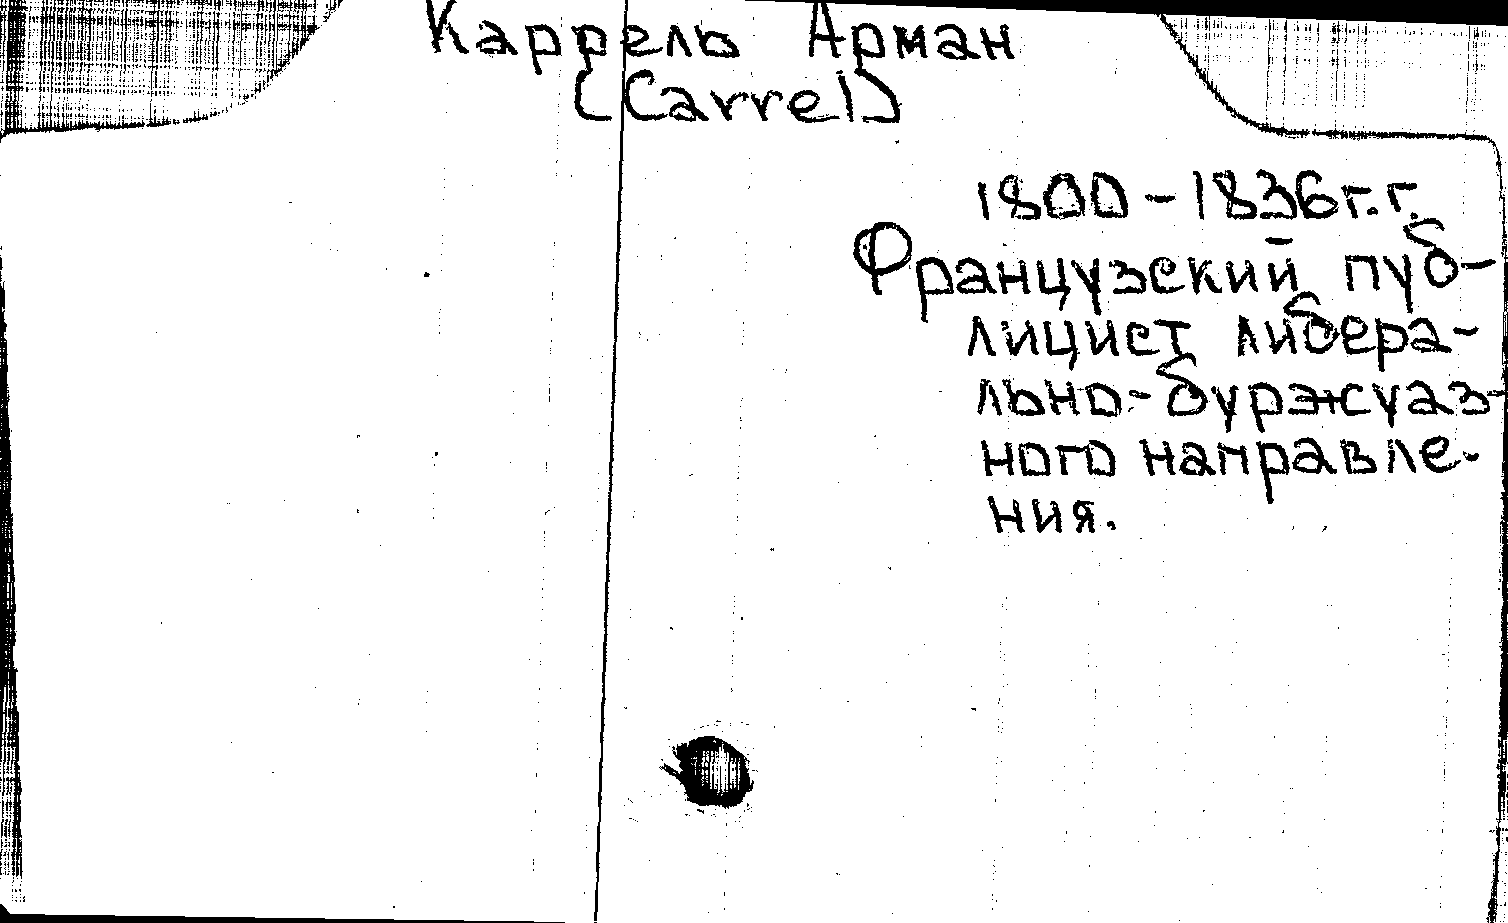 Каррель Арман
(Carrel)
1800-1836г.г.
Французский пуб-
лицист либера-
льно-буржуаз-
ного направле-
ния.